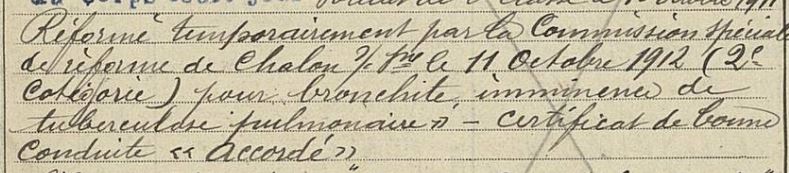 du Corps
soldat de 2e classe le 1911
Réformé temporairement par la Commission spéciale
de réforme de Chalon s/ Sne le 11 Octobre 1912 (2e
Catégorie) pour bronchite, imminence de
tuberculose pulmonaire » – certificat de bonne
conduite « accordé »